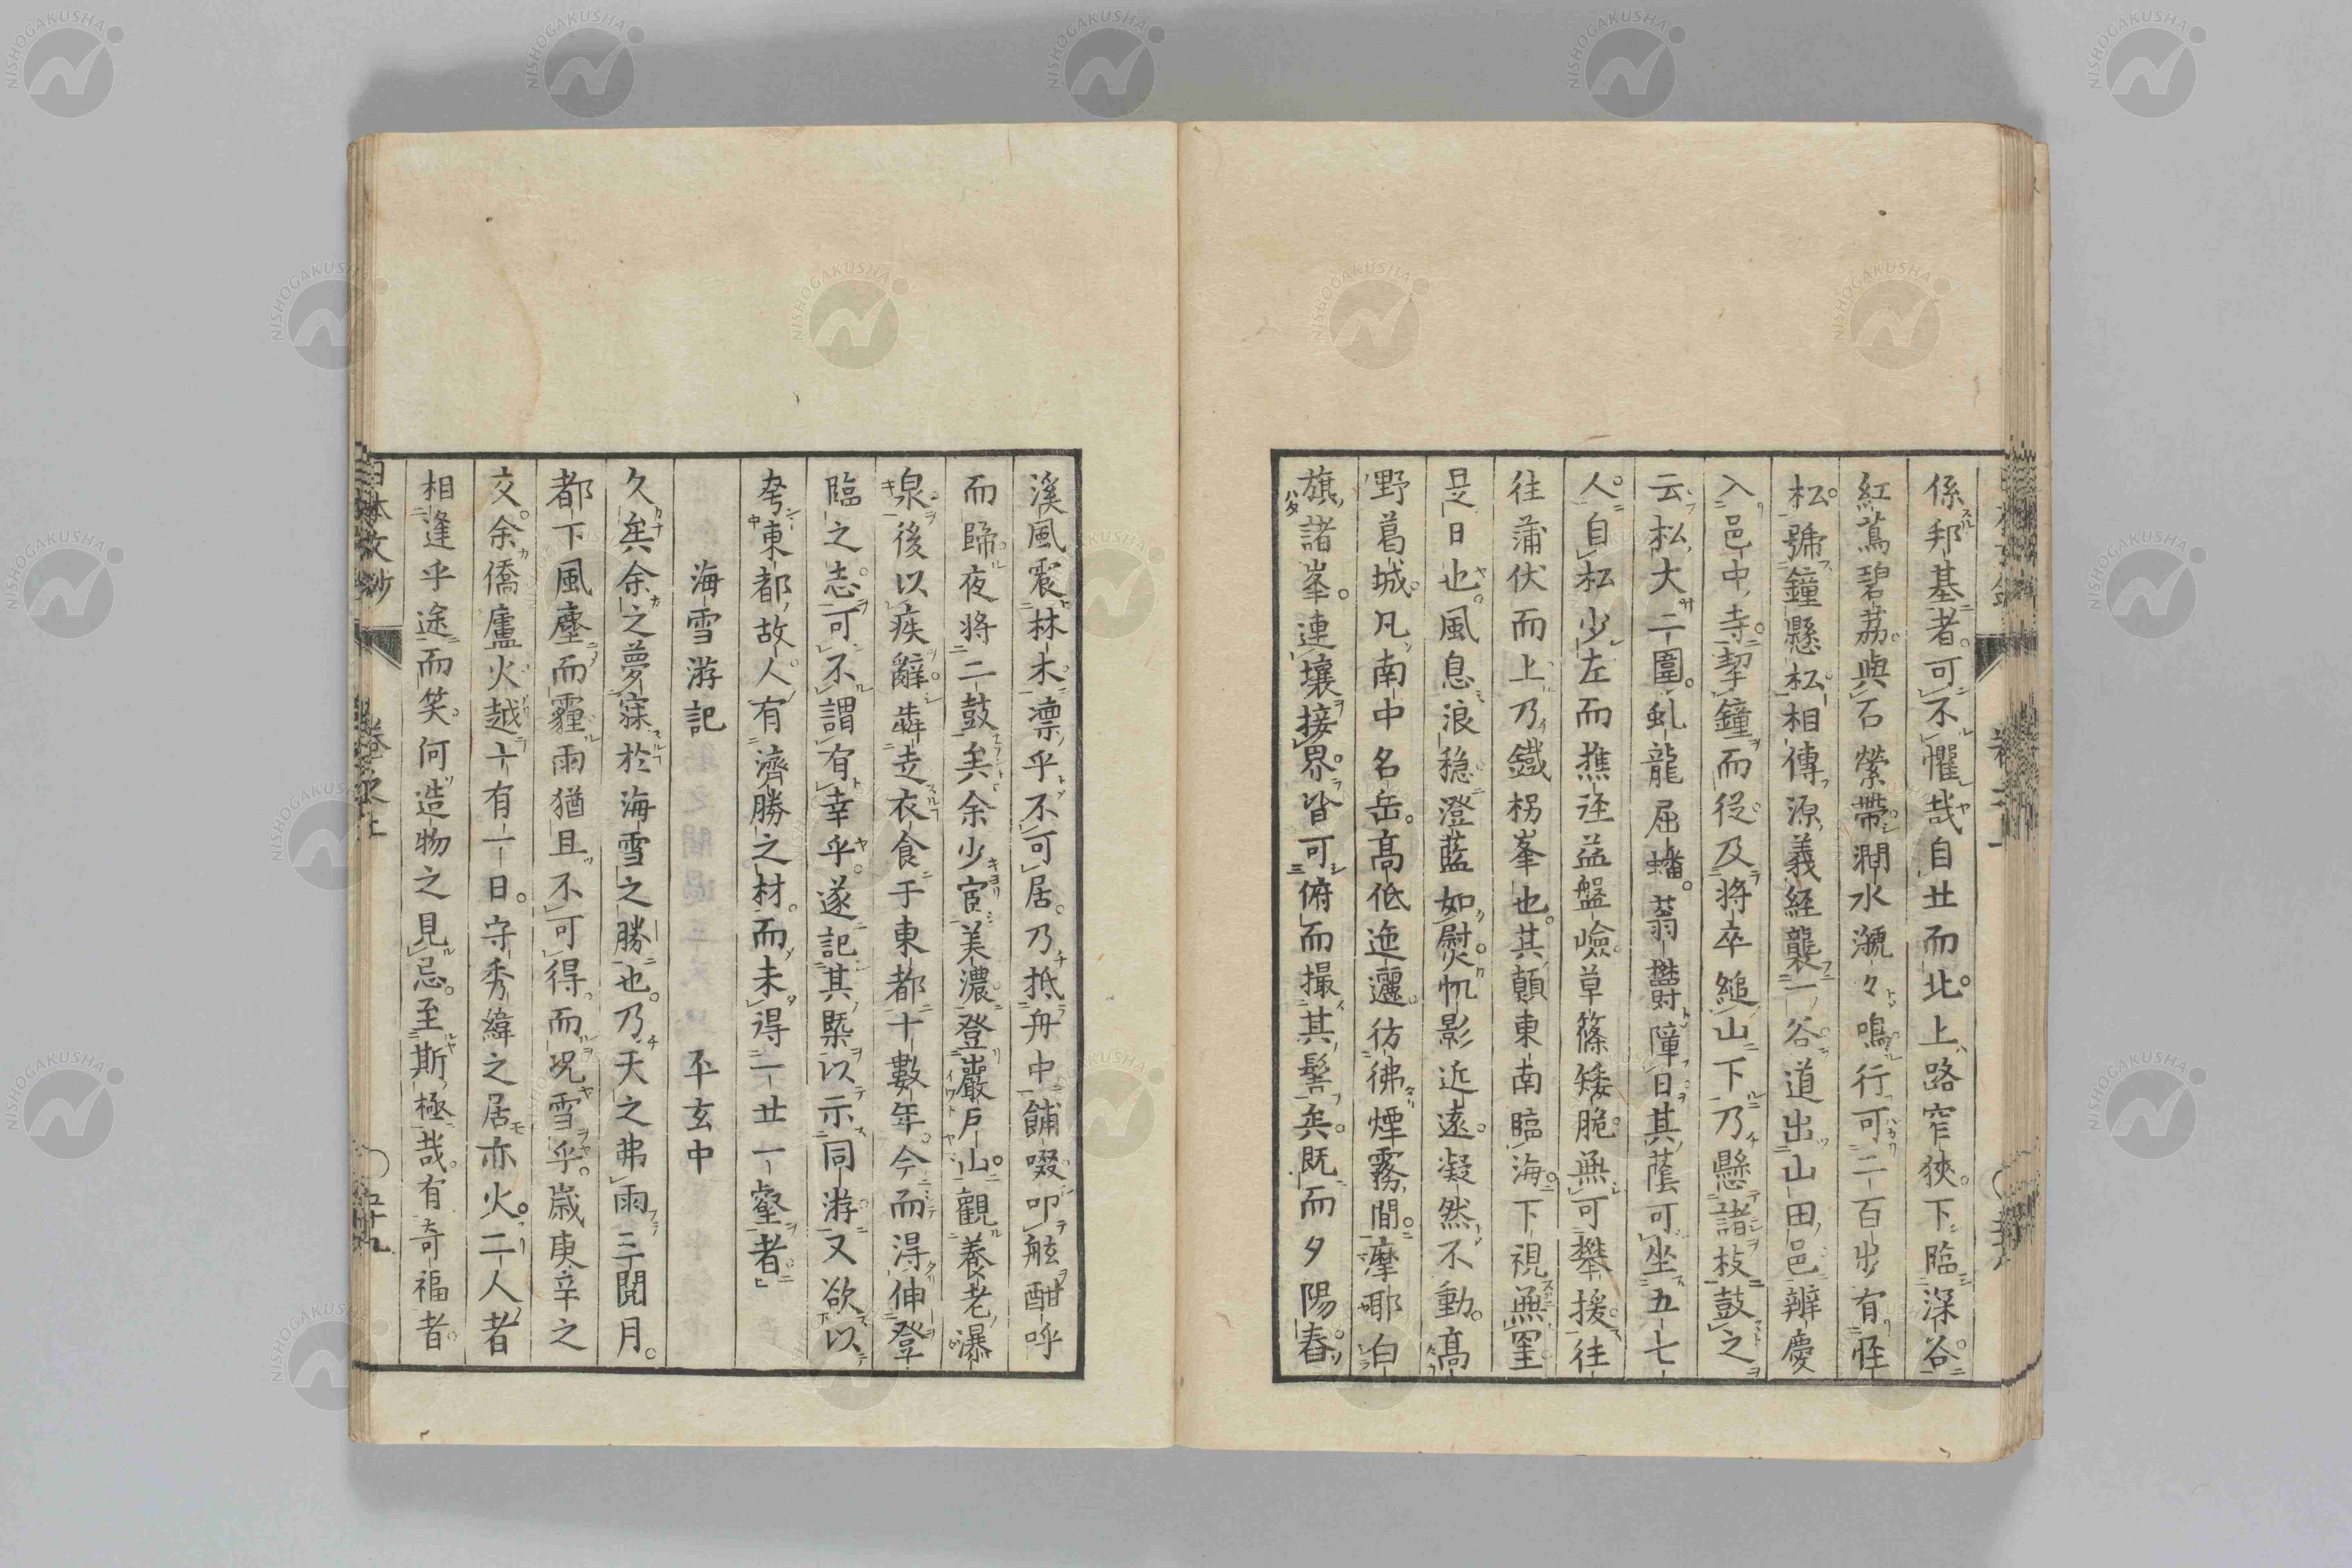 係邦基者可不懼哉自此而北上路窄狹下臨深谷
紅蔦碧荔與石縈帶澗水漉々鳴行可二百步有怪
松號鐘懸松相傳源義經襲一谷道出山田邑辨慶
入邑中寺挈鐘而從及將卒縋山下乃懸諸枝鼓之
云松大二圍虬龍屈蟠蓊鬱障日其蔭可坐五七
人自松少左而樵逕益盤嶮草篠矮脆無可攀援往
往蒲伏而上乃鐵枴峯也其顛東南臨海下視無罣
是日也風息浪穏澄藍如熨帆影近遠凝然不動高
野葛城凡南中名岳高低迤邐彷彿煙霧間摩耶白
旗諸峯連壤接界皆可俯而撮其髻矣既而夕陽舂
溪風震林木凛乎不可居乃抵舟中餔啜叩舷酣呼
而歸夜將二鼓矣余少宦美濃登巖戶山觀養老瀑
泉後以疾辭犇走衣食于東都十數年今而得伸登
臨之志可不謂有幸乎遂記其槩以示同游又欲以
夸東都故人有濟勝之材而未得一此一壑者
海雪游記 平玄中
久矣余之夢寐於海雪之勝也乃天之弗雨三閱月
都下風塵而霾雨猶且不可得而况雪乎歲庚辛之
交余僑廬火越十有一日守秀緯之居亦火二人者
相逢乎途而笑何造物之見忌至斯極哉有奇福者
日本文鈔
NISHOGAKUSHA